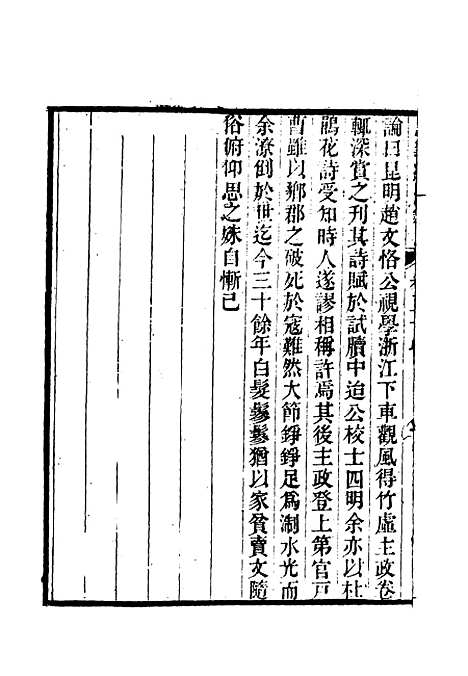 論曰昆明趙文恪公視學浙江下車觀風得竹虛主政卷
輒深賞之刊其詩賦於試牘中迨公校士四明余亦以杜
鵑花詩受知時人遂謬相稱許焉其後主政登上第官戸
曹雖以鄉郡之破死於寇難然大節錚錚足爲淛水光而
余潦倒於世迄今三十餘年白髮鬖鬖猶以家貧賣文隨
俗俯仰思之姝自慚已